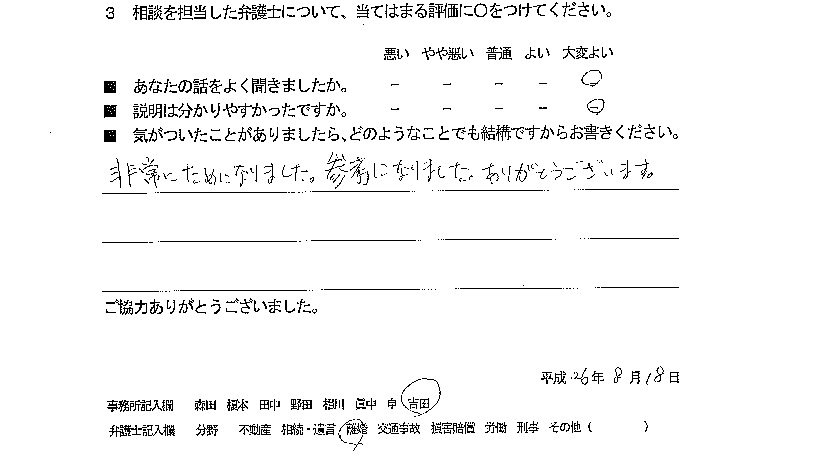 3 相談を担当した弁護士について、当てはまる評価に〇をつけてください。
悪い やや悪い 普通 よい 大変よい
■ あなたの話をよく聞きましたか。 － － － － －
■ 説明は分かりやすかったですか。 － － － － －
■ 気がついたことがありましたら、どのようなことでも結構ですからお書きください。
非常にためになりました。参考になりました。ありがとうございます。
ご協力ありがとうございました。
平成 26 年 8 月 18 日
事務所記入欄 森田 榎本 田中 野田 畑中 卓 吉田
弁護士記入欄 分野 不動産 相続・遺言 離婚 交通事故 損害賠償 労働 刑事 その他 （ ）